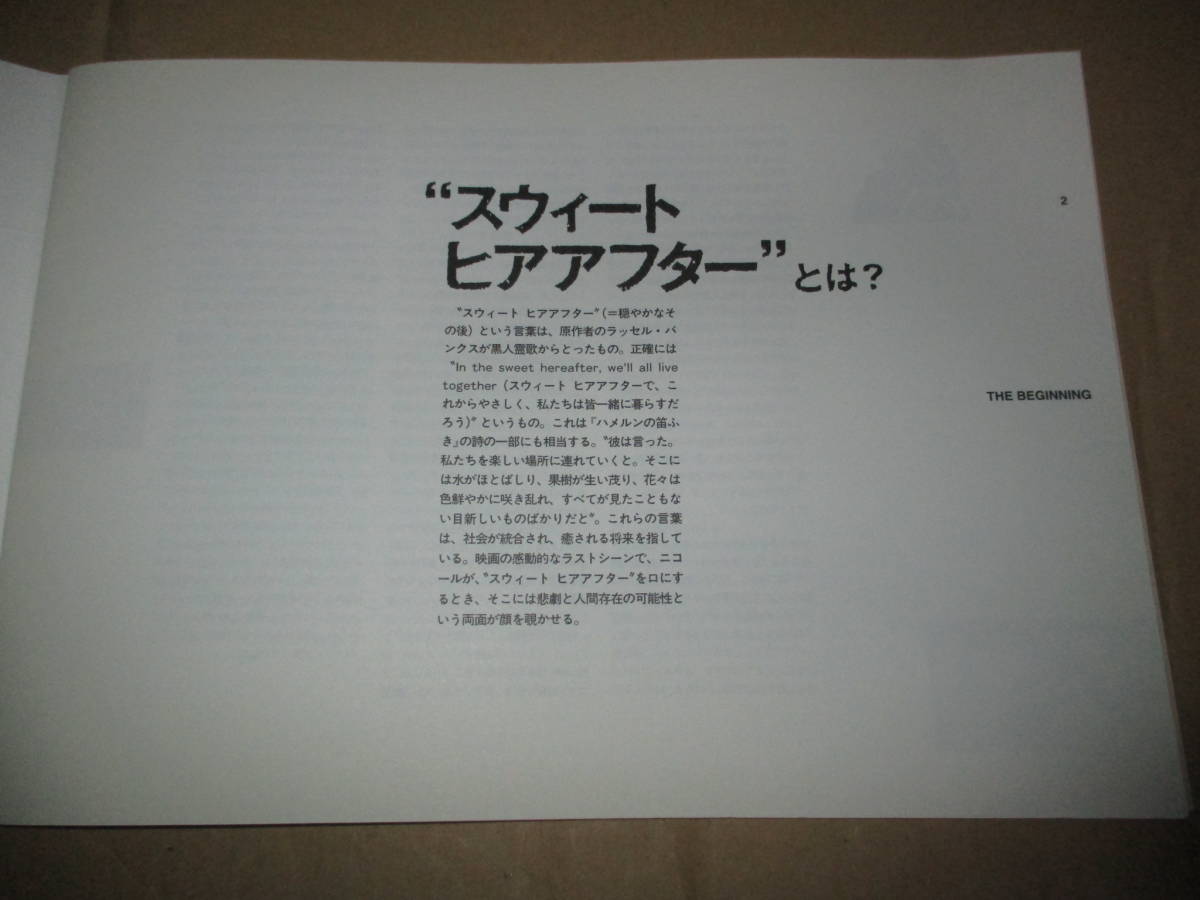 “スウィート
ヒアアフター”とは？
2
〝スウィート ヒアアフター〟(＝穏やかなそ
の後）という言葉は、原作者のラッセル・バ
ンクスが黒人霊歌からとったもの。正確には
〝In the sweet hereafter, we'll all live
together (スウィート ヒアアフターで、こ
れからやさしく、私たちは皆一緒に暮らすだ
ろう)〟というもの。これは『ハメルンの笛ふ
き』の詩の一部にも相当する。〝彼は言った。
私たちを楽しい場所に連れていくと。そこに
は水がほとばしり、果樹が生い茂り、花々は
色鮮やかに咲き乱れ、すべてが見たこともな
い目新しいものばかりだと〟。これらの言葉
は、社会が統合され、癒される将来を指して
いる。映画の感動的なラストシーンで、ニコ
ールが、〝スウィート ヒアアフター〟を口にす
るとき、そこには悲劇と人間存在の可能性と
いう両面が顔を覗かせる。
THE BEGINNING